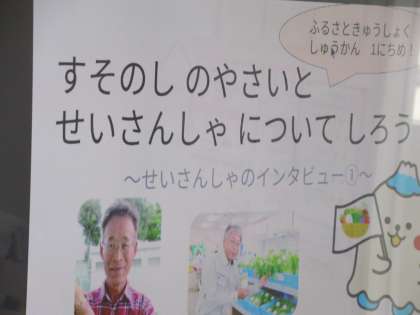 ふるさときゅうしょく
しゅうかん 1にちめ！
すそのし のやさいと
せいさんしゃ について しろう
～せいさんしゃのインタビュー①～